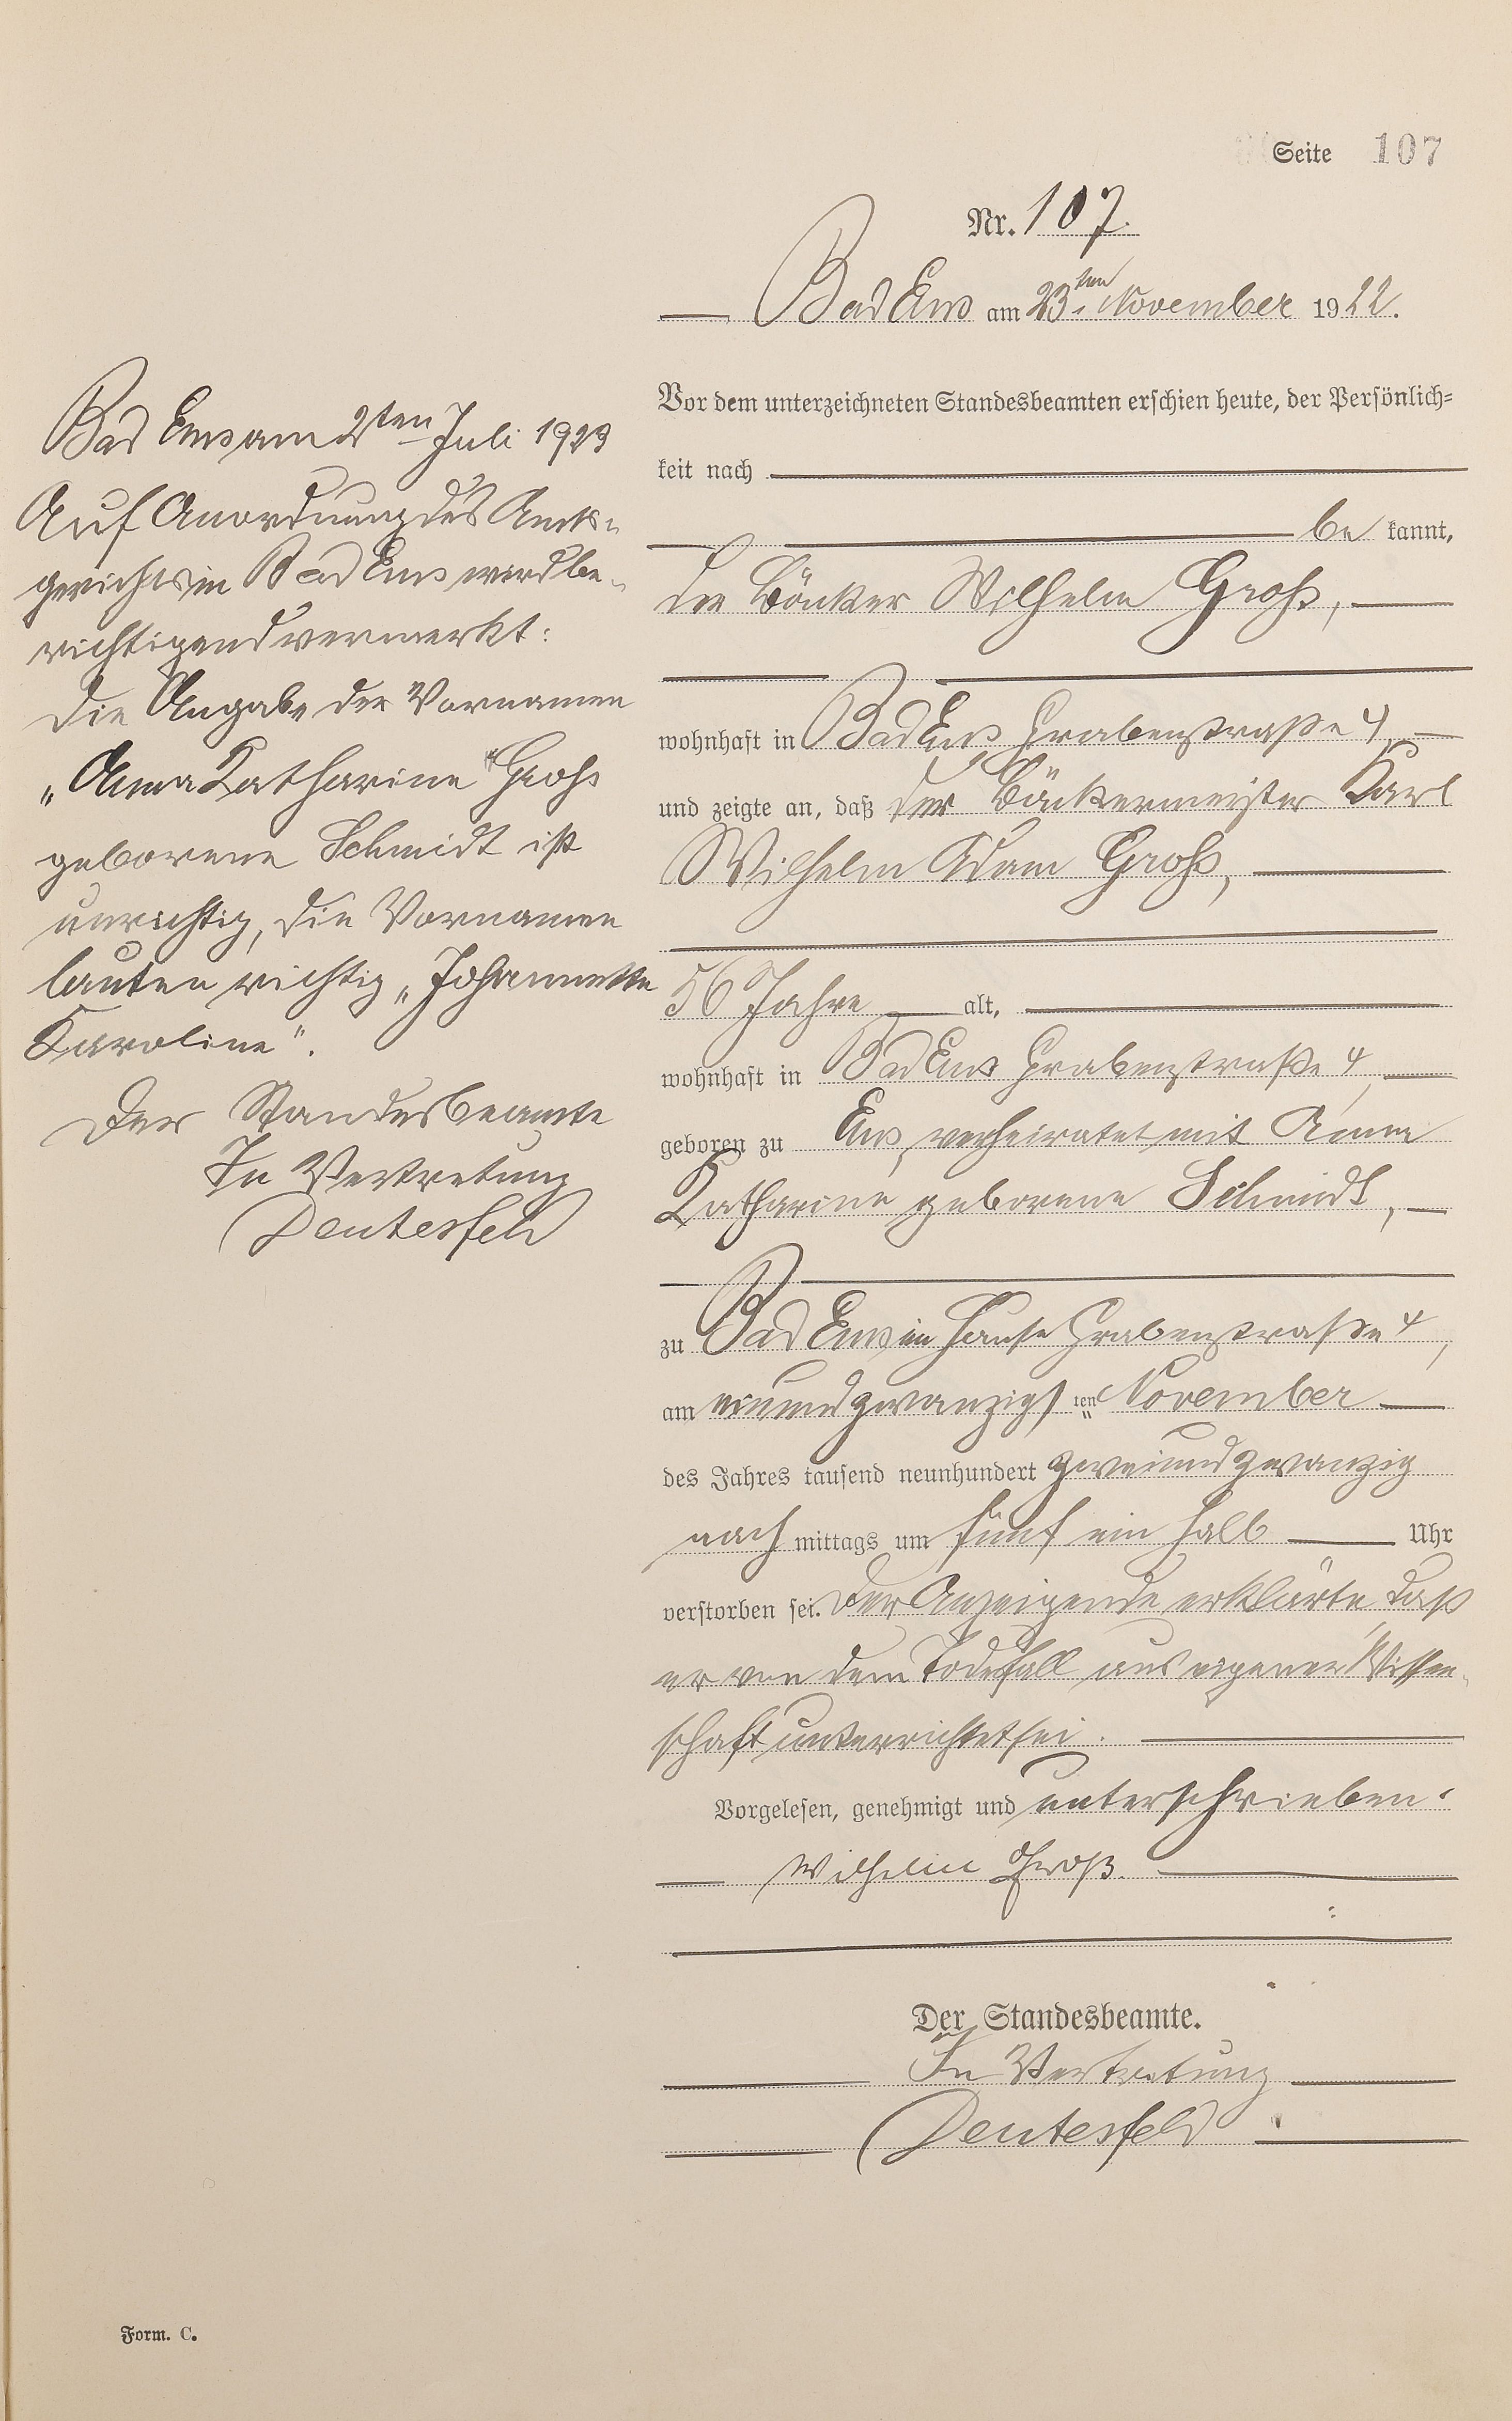 Seite 107
Nr. 107.
Bad Ems am 23ten November 1922.
Vor dem unterzeichneten Standesbeamten erschien heute, der Persönlich-
keit nach
be kannt,
der Bäcker Wilhelm Groß,
wohnhaft in Bad Ems Grabenstraße 4
und zeigte an, daß der Bäckermeister Karl
Wilhelm Adam Groß,
56 Jahre alt,
wohnhaft in Bad Ems Grabenstraße 4,
geboren zu Ems, verheiratet mit Anna
Katharine geborene Schmidt,
zu Bad Ems im Hause Grabenstraße 4,
am einundzwanzigsten November
des Jahres tausend neunhundert zweiundzwanzig
nach mittags um fünf ein halb Uhr
verstorben sei. Der Anzeigende erklärte, daß
er von dem Todesfall aus eigener Wissen-
schaft unterrichtet sei.
Vorgelesen, genehmigt und unterschrieben.
Wilhelm Groß.
Der Standesbeamte.
In Vertretung
Deutesfeld
Bad Ems am 2ten Juli 1923
Auf Anordnung des Amts-
gerichts in Bad Ems wird be-
richtigend vermerkt:
Die Angabe der Vornamen
„Anna Katharine" Groß
geborene Schmidt ist
unrichtig, die Vornamen
lauten richtig „Johannette
Karoline".
Der Standesbeamte
In Vertretung
Deutesfeld
Form. C.